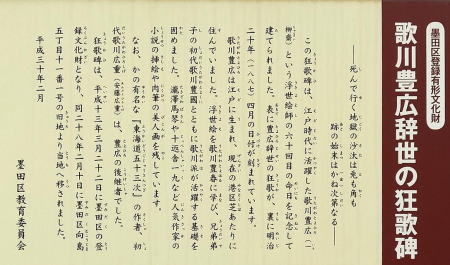 墨田区登録有形文化財
歌川豊広辞世の狂歌碑
――死んで行く地獄の沙汰は兎も角も
跡の始末はかね次第なる――
この狂歌碑は、江戸時代に活躍した歌川豊広（一
柳斎）という浮世絵師の六十回目の命日を記念して
建てられました。表に豊広辞世の狂歌が、裏に明治
二十年（一八八七）四月の日付が刻まれています。
歌川豊広は江戸に生まれ、現在の港区芝あたりに
住んでいました。浮世絵を歌川豊春に学び、兄弟弟
子の初代歌川豊國とともに歌川派が活躍する基礎を
固めました。瀧澤馬琴や十返舎一九など人気作家の
小説の挿絵や肉筆の美人画を残しています。
なお、かの有名な『東海道五十三次』の作者、初
代歌川広重（安藤広重）は、豊広の後継者でした。
狂歌碑は、平成十三年三月二十二日に墨田区の登
録文化財となり、同二十八年二月十日に墨田区向島
五丁目十一番一号の旧地より当地へ移されました。
平成三十年二月
墨田区教育委員会